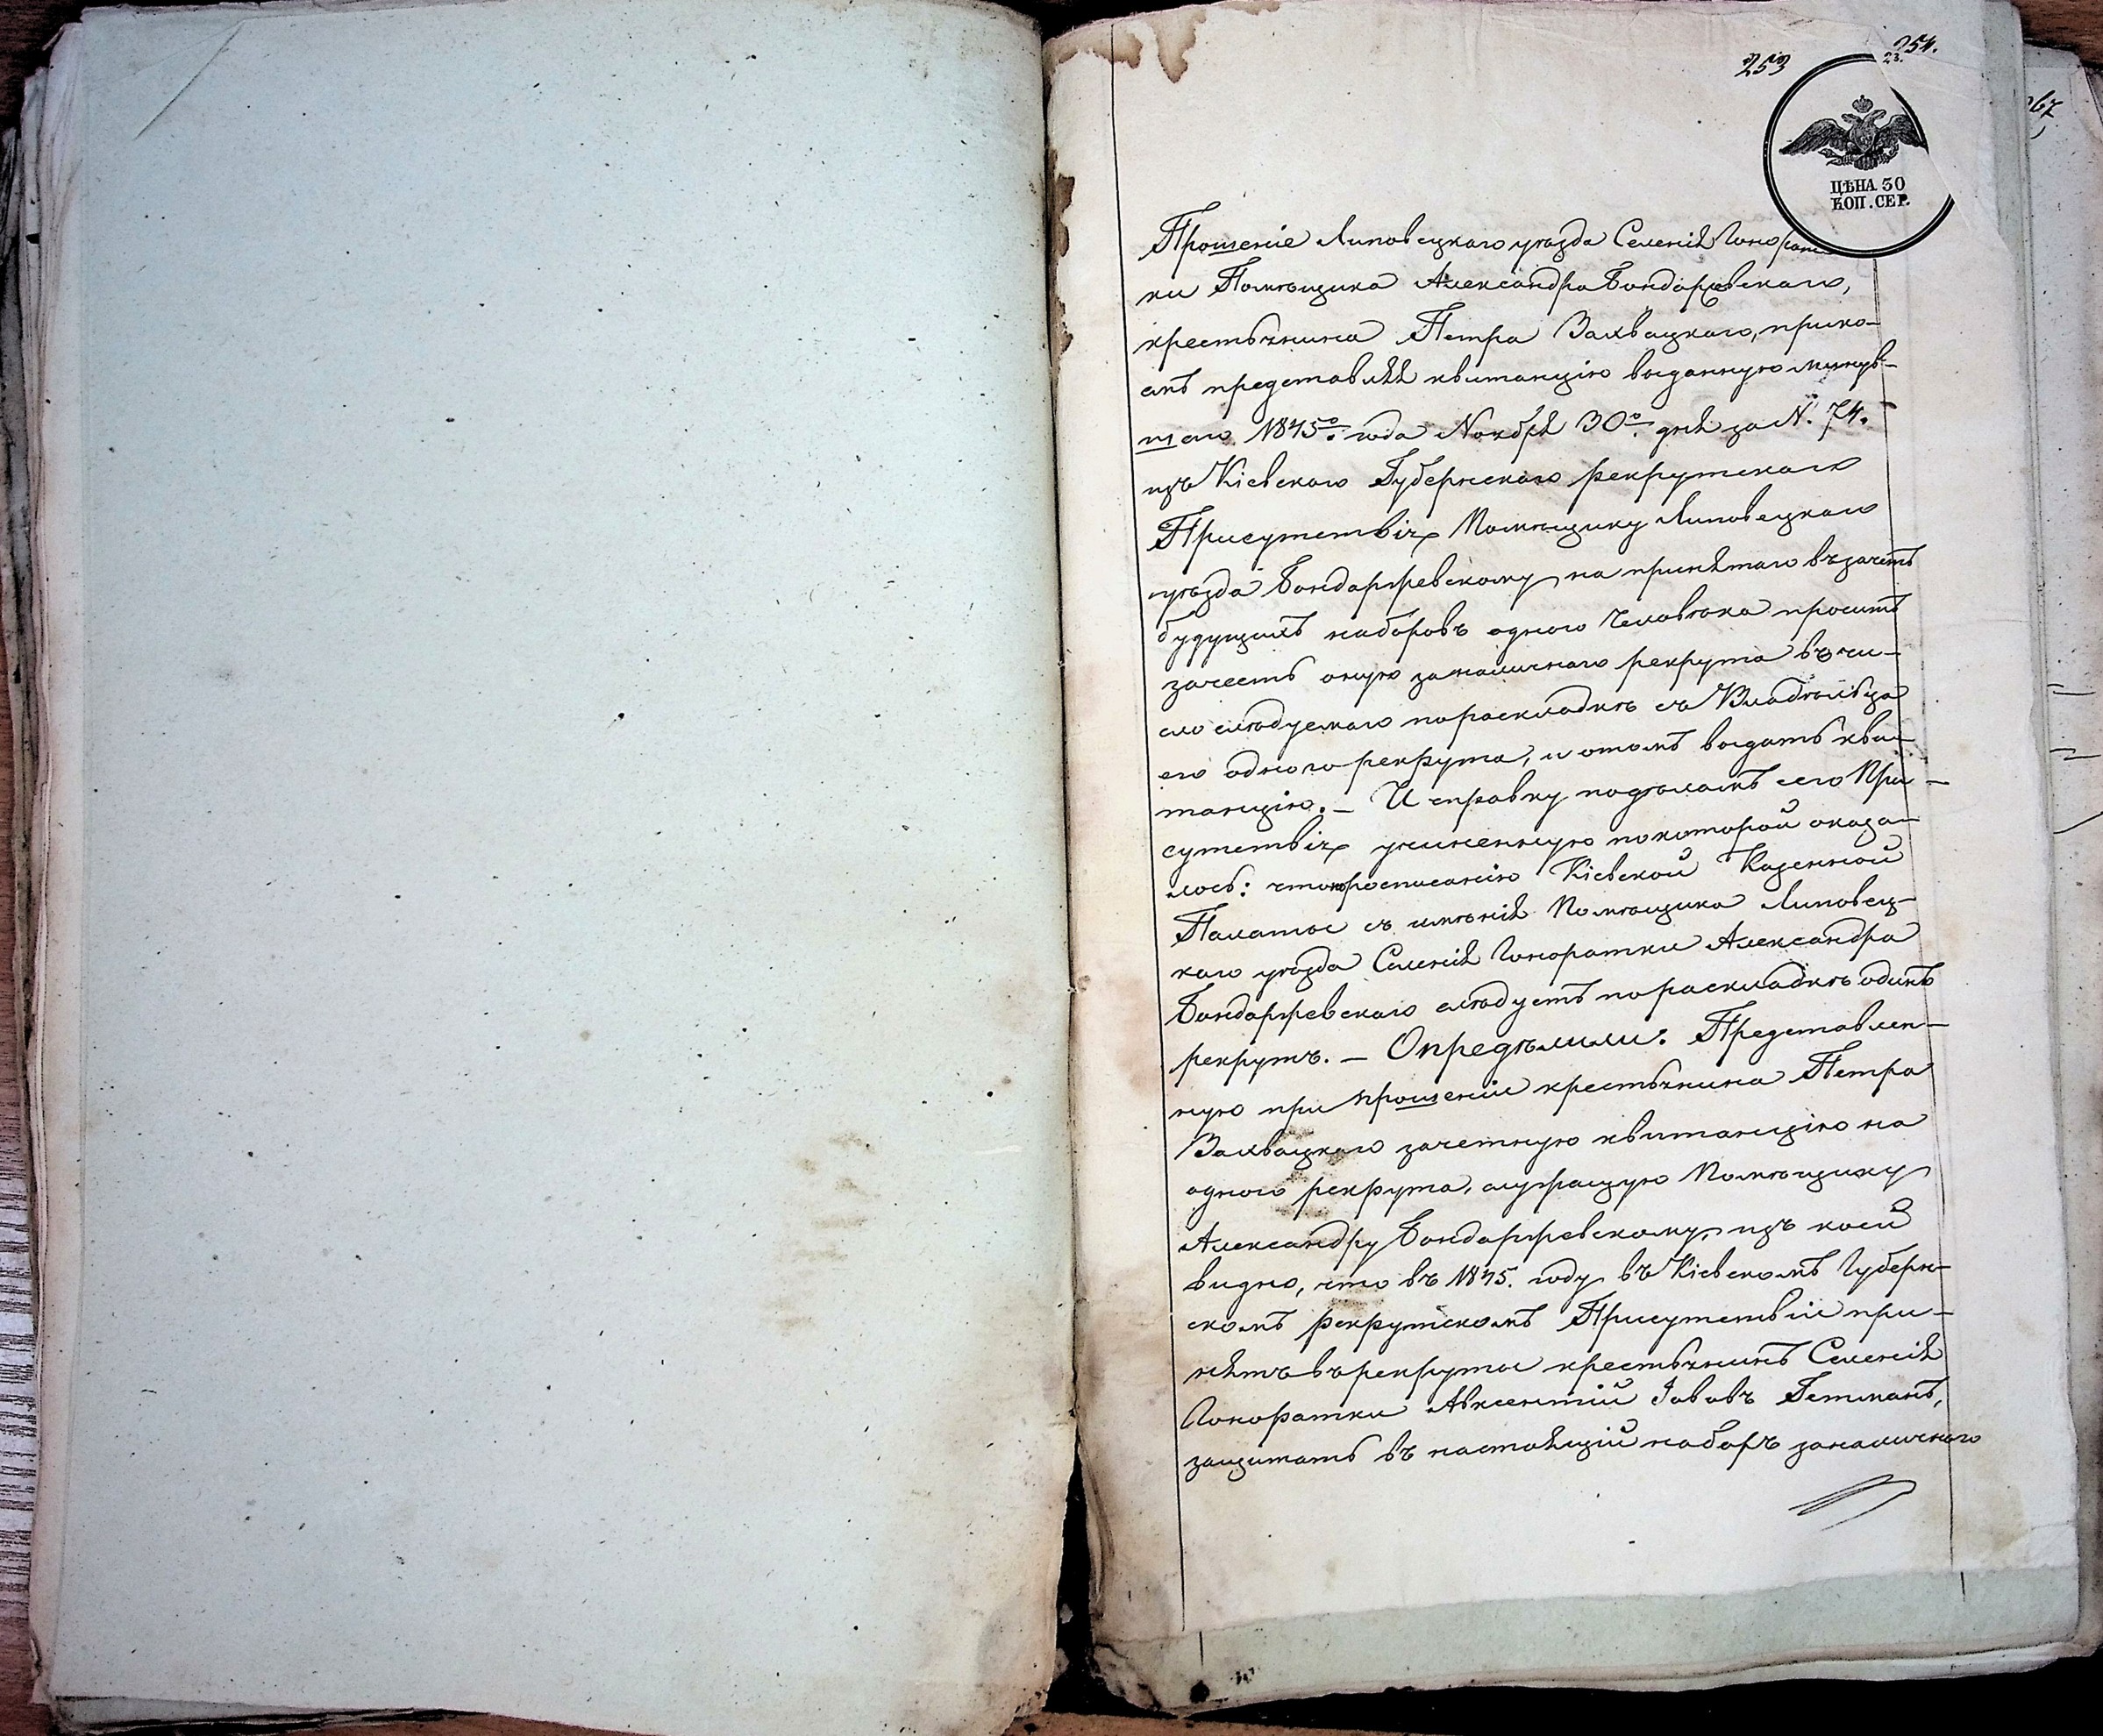 253
254.
23.
267
ЦѢНА 30
КОП. СЕР.
Прошеніе Липовецкаго уѣзда Селенія Гонорат
ки Помѣщика Александра Бондаржевскаго,
крестьянина Петра Захвацкаго, прико-
емъ представляя квитанцію выданную минув-
шаго 1845го года Ноября 30го дня за N. 74.
изъ Кіевскаго Губернскаго рекрутскаго
Присутствія Помѣщику Липовецкаго
уѣзда Бондаржевскому на принятаго въ зачетъ
будущихъ наборовъ одного человѣка проситъ
зачесть оную за наличнаго рекрута въ чи-
сло слѣдуемаго по раскладкѣ съ Владѣльца
его одного рекрута, и отомъ выдать кви-
танцію. — И справку подѣламъ сего При-
сутствія учиненную по которой оказа-
лось: что по росписанію Кіевской Казенной
Палаты съ имѣнія Помѣщика Липовец-
каго уѣзда Селенія Гоноратки Александра
Бондаржевскаго слѣдуетъ по раскладкѣ одинъ
рекрутъ. — Опредѣлили: Представлен-
ную при прошеніи крестьянина Петра
Захвацкаго зачетную квитанцію на
одного рекрута, служащую Помѣщику
Александру Бондаржевскому, изъ коей
видно, что въ 1845. году въ Кіевскомъ Губерн-
скомъ рекрутскомъ Присутствіи при-
нятъ въ рекруты крестьянинъ Селенія
Гоноратки Авксентій Іововъ Гетманъ,
защитать въ настоящій наборъ за наличнаго